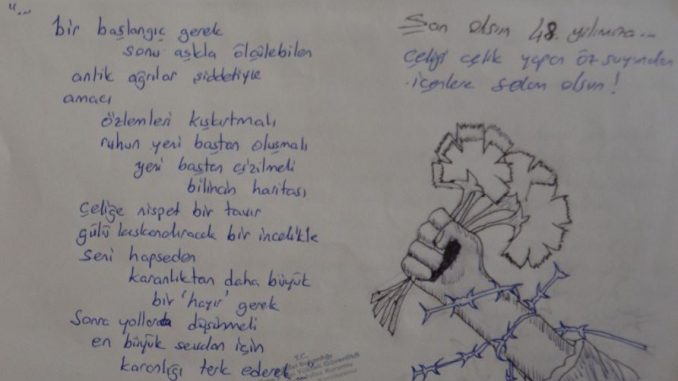 "...
bir başlangıç gerek
sonu aşkla ölçülebilen
anlık ağrılar şiddetiyle
amacı
özlemleri kışkırtmalı
ruhun yeni baştan oluşmalı
yeni baştan çizilmeli
bilincin haritası
çeliğe nispet bir tavır
gülü kıskandıracak bir incelikle
seni hapseden
karanlıktan daha büyük
bir 'hayır' gerek
Sonra yollara düşülmeli
en büyük sevdan için
karanlığı terk ederek
Şan olsun 48. yılımıza...
Çeliği çelik yapan öz suyundan
içenlere selam olsun!
T.C.